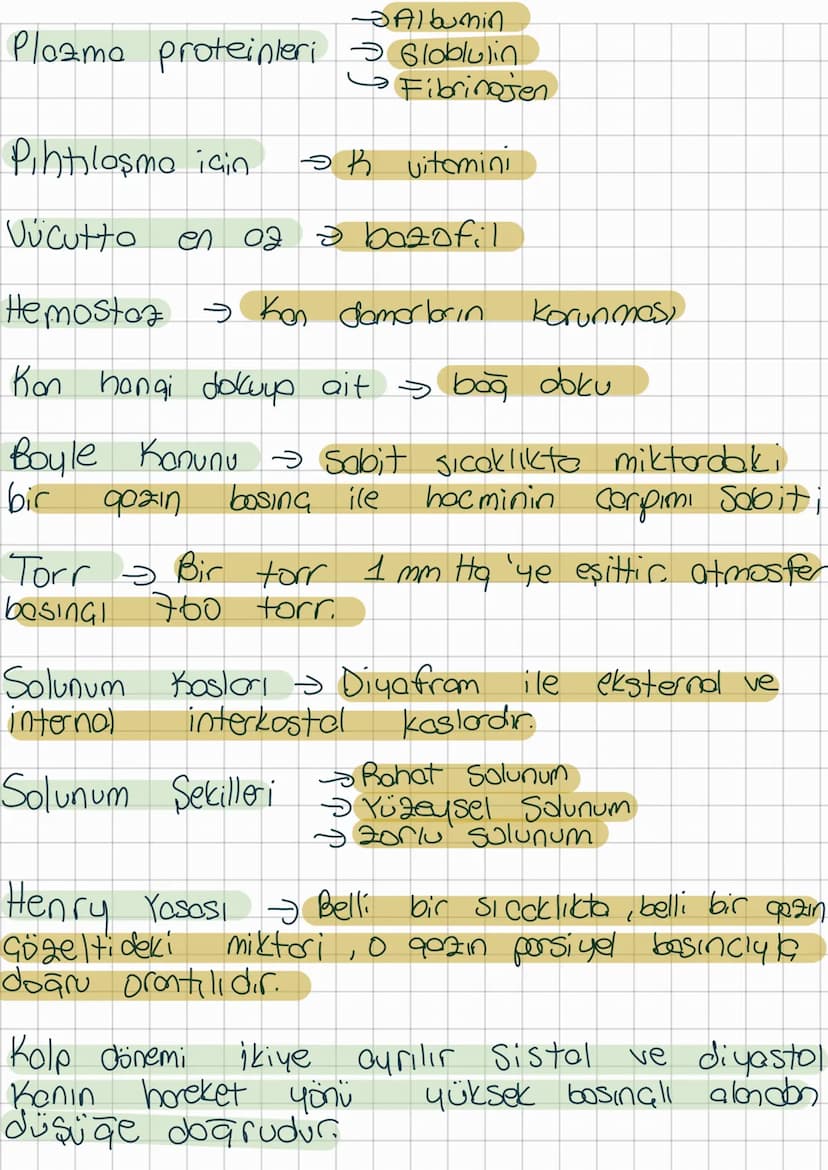 Plazma proteinleri → Albumin
→ Globlulin
→ Fibrinojen
Pıhtılaşma için → K vitamini
Vücutta en az → bazofil
Hemostaz → Kan damarların korunması
Kan hangi dokuya ait → bağ doku
Boyle Kanunu → Sabit sıcaklıkta miktardaki
bir gazın basınç ile hacminin çarpımı sabiti
Torr → Bir torr 1 mm Hg 'ye eşittir. atmosfer
basıncı 760 torr.
Solunum Kasları → Diyafram ile eksternal ve
internal interkostal kaslardır.
Solunum Şekilleri → Rahat Solunum
→ Yüzeysel Solunum
→ zorlu solunum
Henry Yasası → Belli bir sıcaklıkta, belli bir gazın
çözeltideki miktarı, o gazın parsiyel basıncıyla
doğru orantılıdır.
Kalp dönemi ikiye ayrılır sistal ve diyastol
Kanın hareket yönü yüksek basınçlı alandan
düşüğe doğrudur.